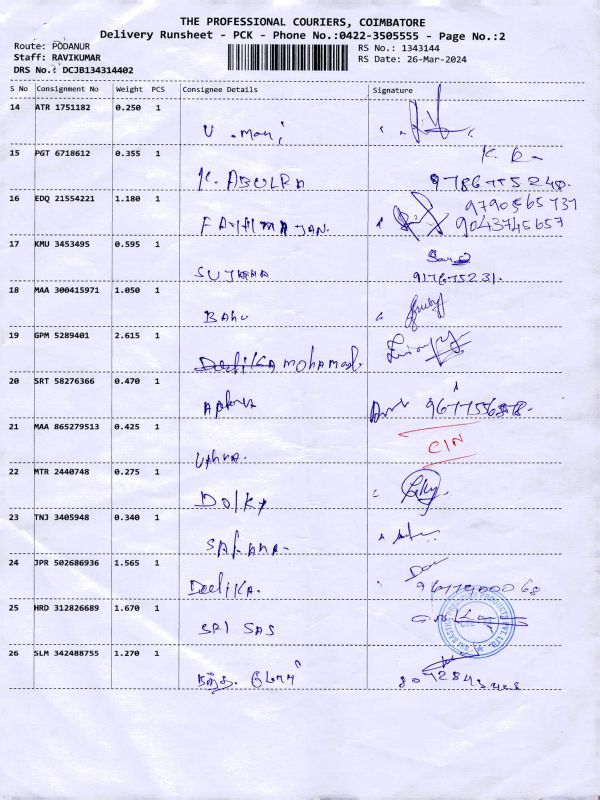 THE PROFESSIONAL COURIERS, COIMBATORE
Delivery Runsheet - PCK - Phone No.:0422-3505555 - Page No.:2
Route: PODANUR
RS No.: 1343144
Staff: RAVIKUMAR
RS Date: 26-Mar-2024
DRS No.: DCJB134314402
S No Consignment No Weight PCS Consignee Details Signature
14 ATR 1751182 0.250 1
U. mani
15 PGT 6718612 0.355 1
K. R
K. ABULRA 9786755240.
16 EDQ 21554221 1.180 1
9790565731
FATHIMA JAN. 9043745657
17 KMU 3453495 0.595 1
SUJATHA 917675231.
18 MAA 300415971 1.050 1
BABU
19 GPM 5289401 2.615 1
MOHAMAD.
20 SRT 58276366 0.470 1
21 MAA 865279513 0.425 1
C/N
22 MTR 2440748 0.275 1
DOLKY
23 TNJ 3405948 0.340 1
SAFANA-
24 JPR 502686936 1.565 1
DEEPIKA.
25 HRD 312826689 1.670 1
SRI SAS
26 SLM 342488755 1.270 1